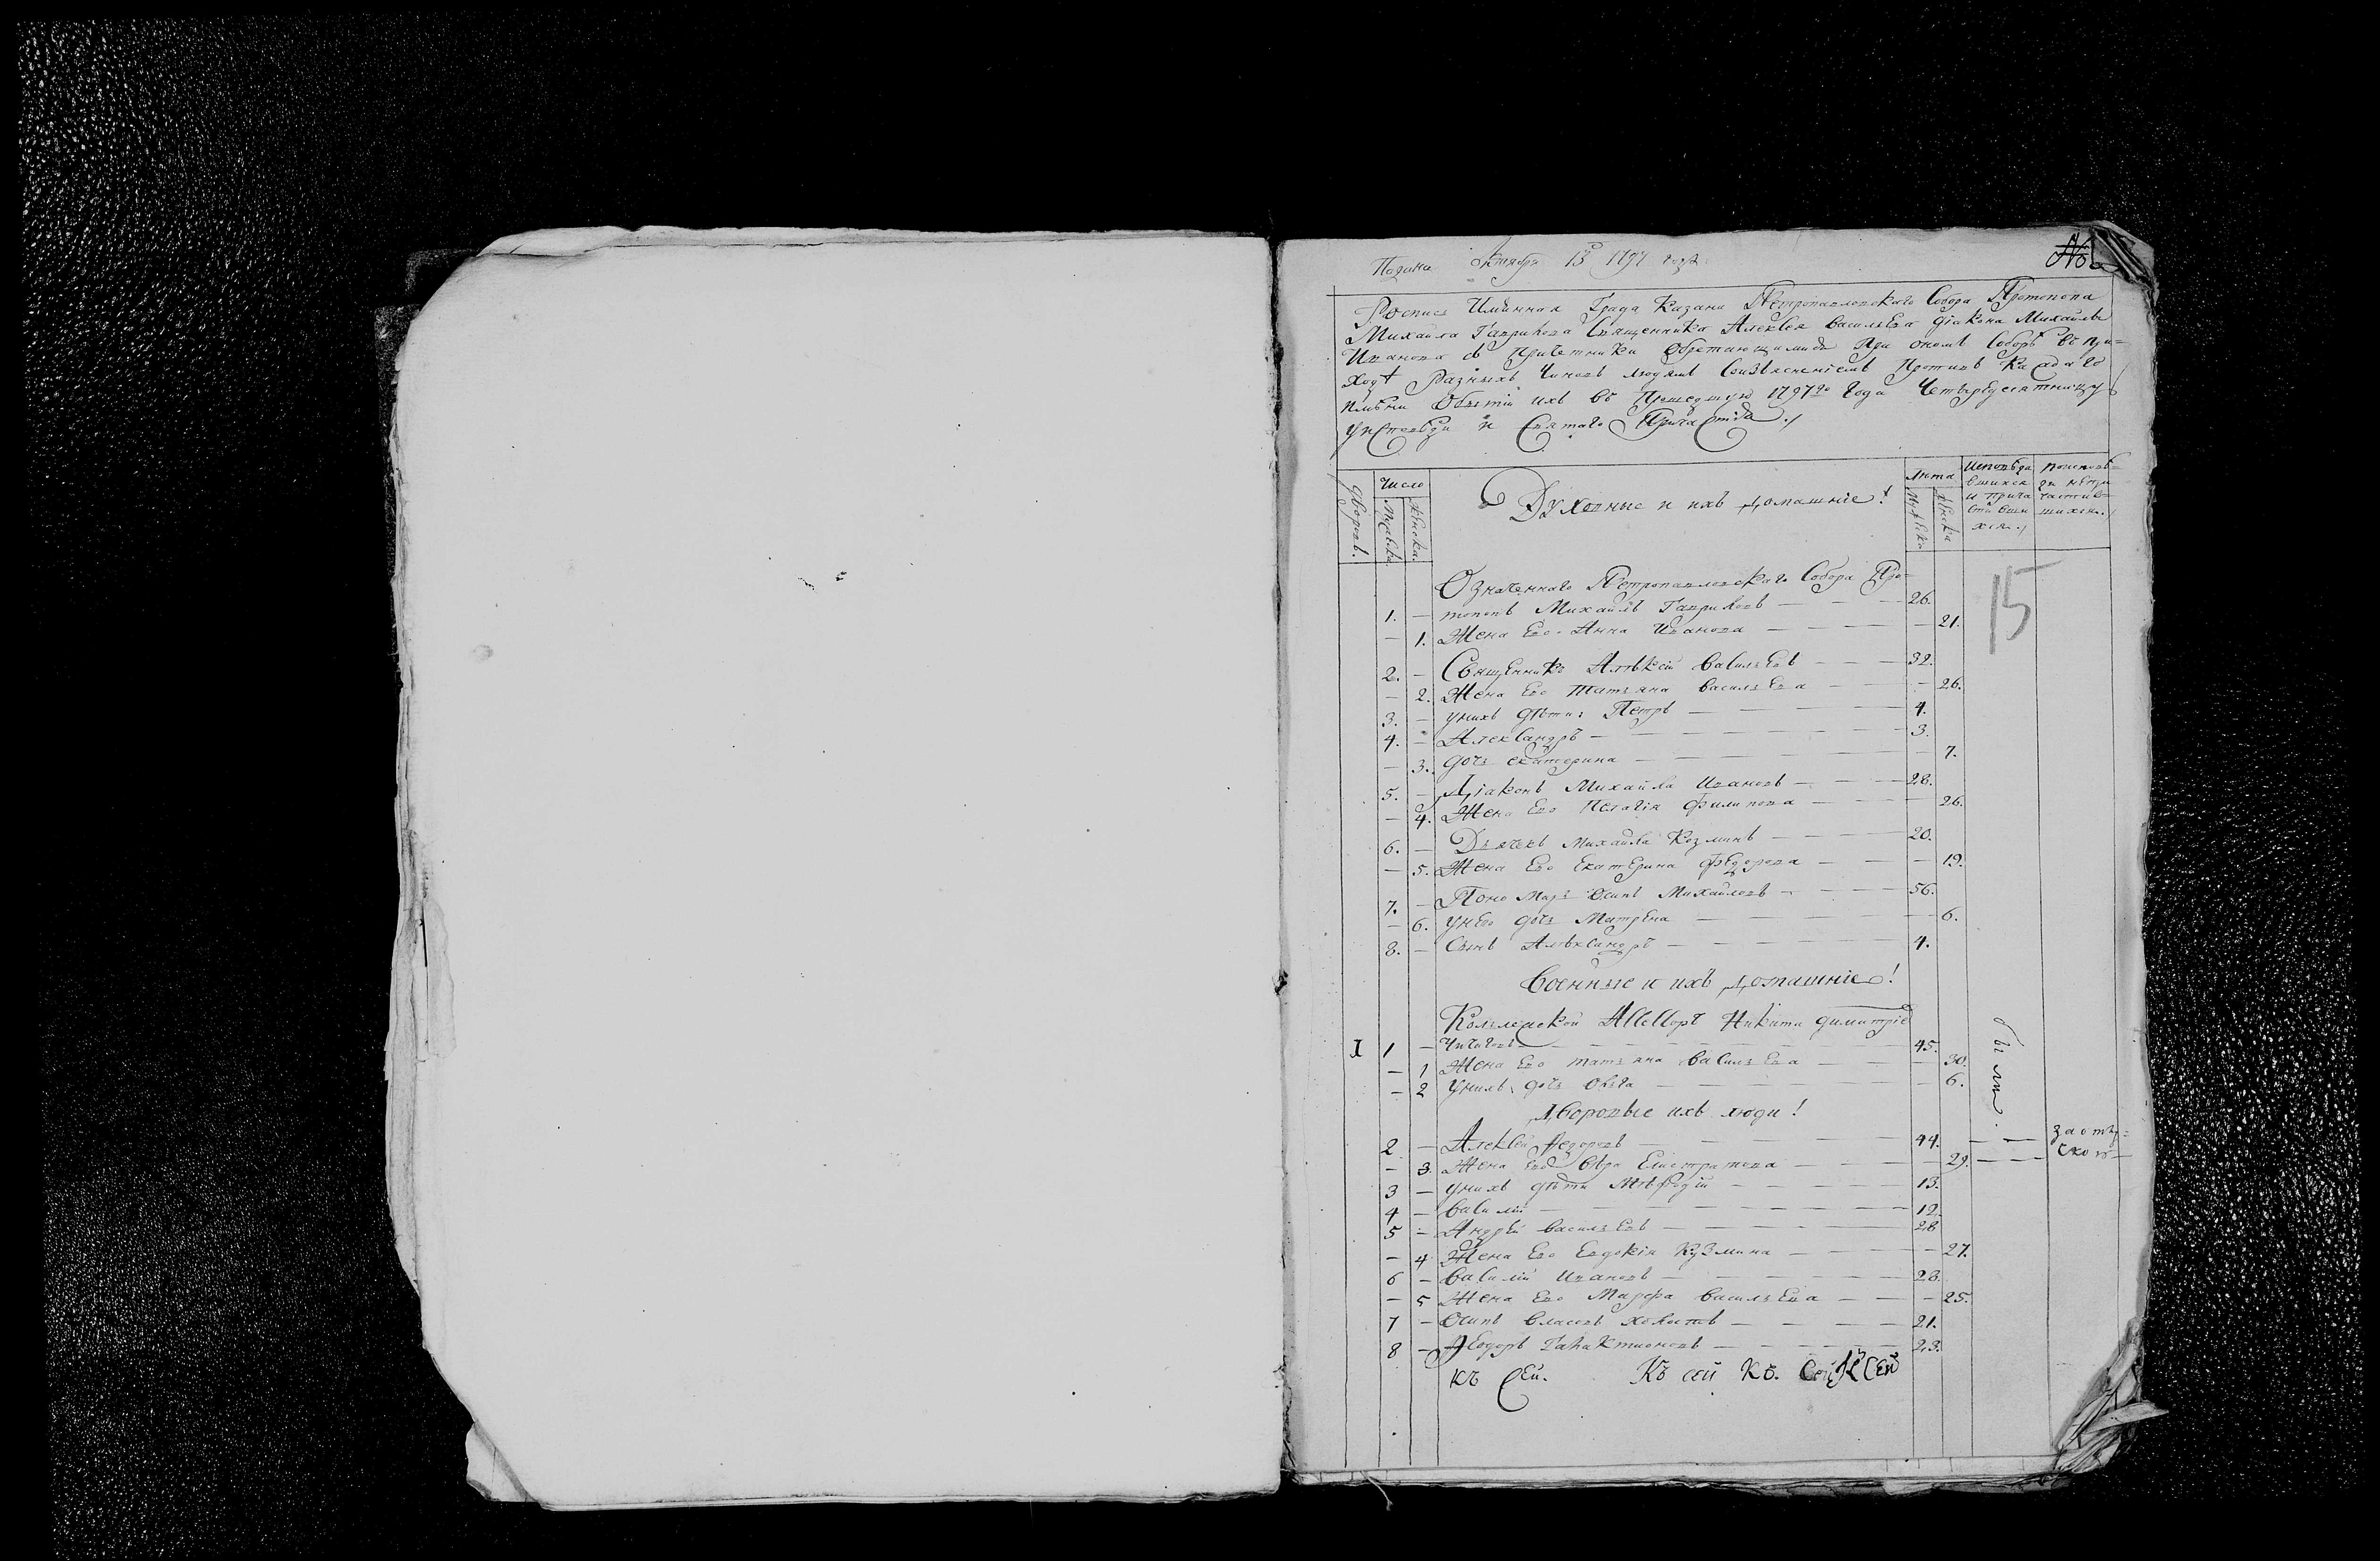 Подана Октября 13 1797 года
№
Роспись Имянная Града Казани Петропавловскаго Собора Протопопа
Михайла Гаврилова Священника Алексея Васильева діакона Михайлы
Иванова съ Причетники Обретающимися При ономъ Соборѣ въ при=
ходѣ Разныхъ Чиновъ людямъ Противъ Каждаго
имѣни Бытіи ихъ въ Прошедшую 1797го Года Четыредесятницу
у Исповѣди и Святаго Причастія
дворовъ.
Число
Мужеска.
Женска.
Духовные и ихъ Домашніе!
Лѣта
Мужеска
Женска
Исповѣда
вшихся
и прича
стивши
хся
Исповѣ=
причастив=
шихся
Означеннаго Петропавловскаго Собора Про=
1. — топопъ Михайлъ Гавриловъ — — — 26.
— 1. Жена Его Анна Иванова — — — 21.
15
2. — Священникъ Алѣксій Васильевъ — — — 32.
— 2. Жена Ево Татьяна Васильева — — — 26.
3. — У нихъ дѣти: Петръ — — — 4.
4. — Александръ — — — 3.
— 3. дочь Екатерина — — — 7.
5. — Діаконъ Михайла Ивановъ — — — 28.
— 4. Жена Ево Пелагія Филипова — — — 26.
6. — Дьячекъ Михайла Козминъ — — — 20.
— 5. Жена Ево Екатерина Федорова — — — 19.
7. — Пономарь Осипъ Михайловъ — — — 56.
— 6. У нево дочь Матрена — — — 6.
8. — Сынъ Алѣксандръ — — — 4.
Военные и ихъ Домашніе!
Колежской Ассесоръ Никита Димитріе
I 1 — — — — 45.
— 1 Жена Ево Татьяна Васильева — — — 30.
— 2 У нихъ дочь Ольга — — — 6.
были
Дворовые ихъ люди!
2 — Алексѣй Федоровъ — — — 44. — —
— 3. Жена Ево Вѣра Елистратова — — — 29. — —
3 — У нихъ дѣти Мѣфодій — — — 13.
4 — Василій — — — 12.
5 — Андрѣй Васильевъ — — — 28
— 4 Жена Ево Евдокія Кузмина — — — 27.
6 — Василій Ивановъ — — — 28.
— 5 Жена Ево Марфа Васильева — — — 25.
7 — Осипъ Власовъ холостъ — — — 21.
8 — Федоръ Галактионовъ — — — 23.
Къ Сей. Къ сей Къ. Сей Къ Сей